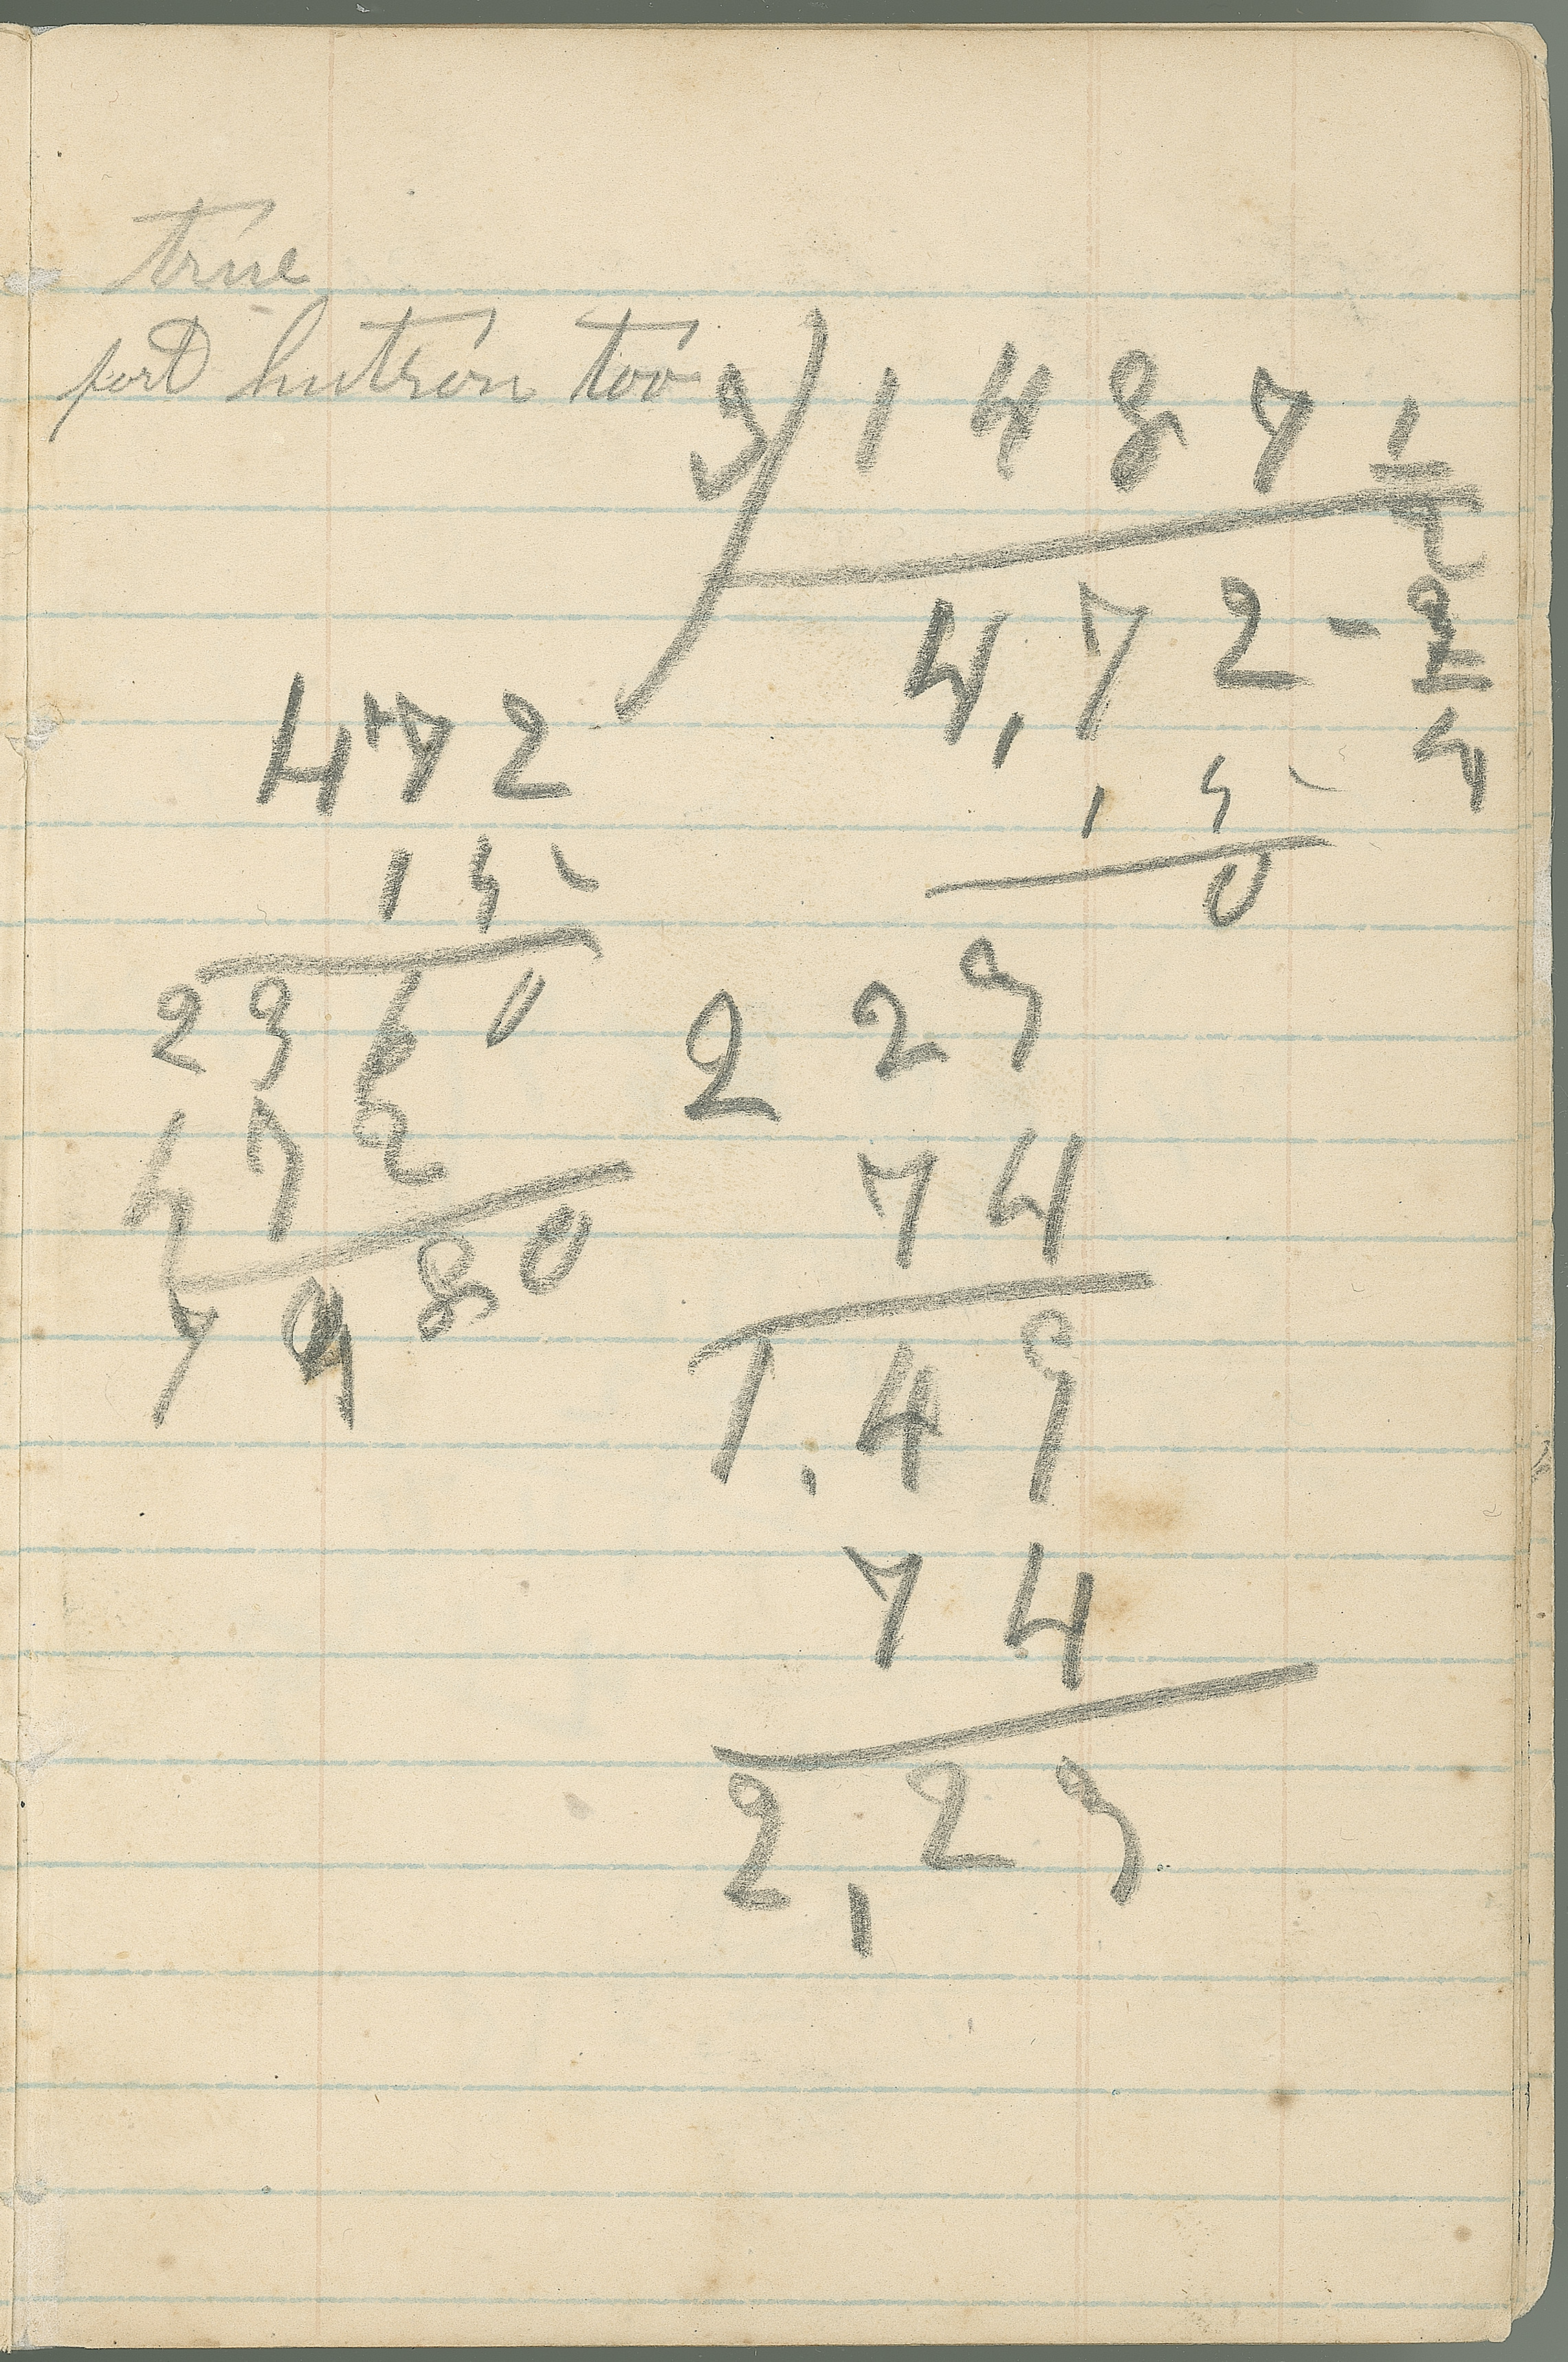 true
port hutron too
3) 1 4 8 7 1/2
4,7 2 - 3/4
1 5
0
4 7 2
1 5
2 3 6 0
4 7 2
7 0 8 0
2 2 3
7 4
1.4 9
7 4
2,2 3